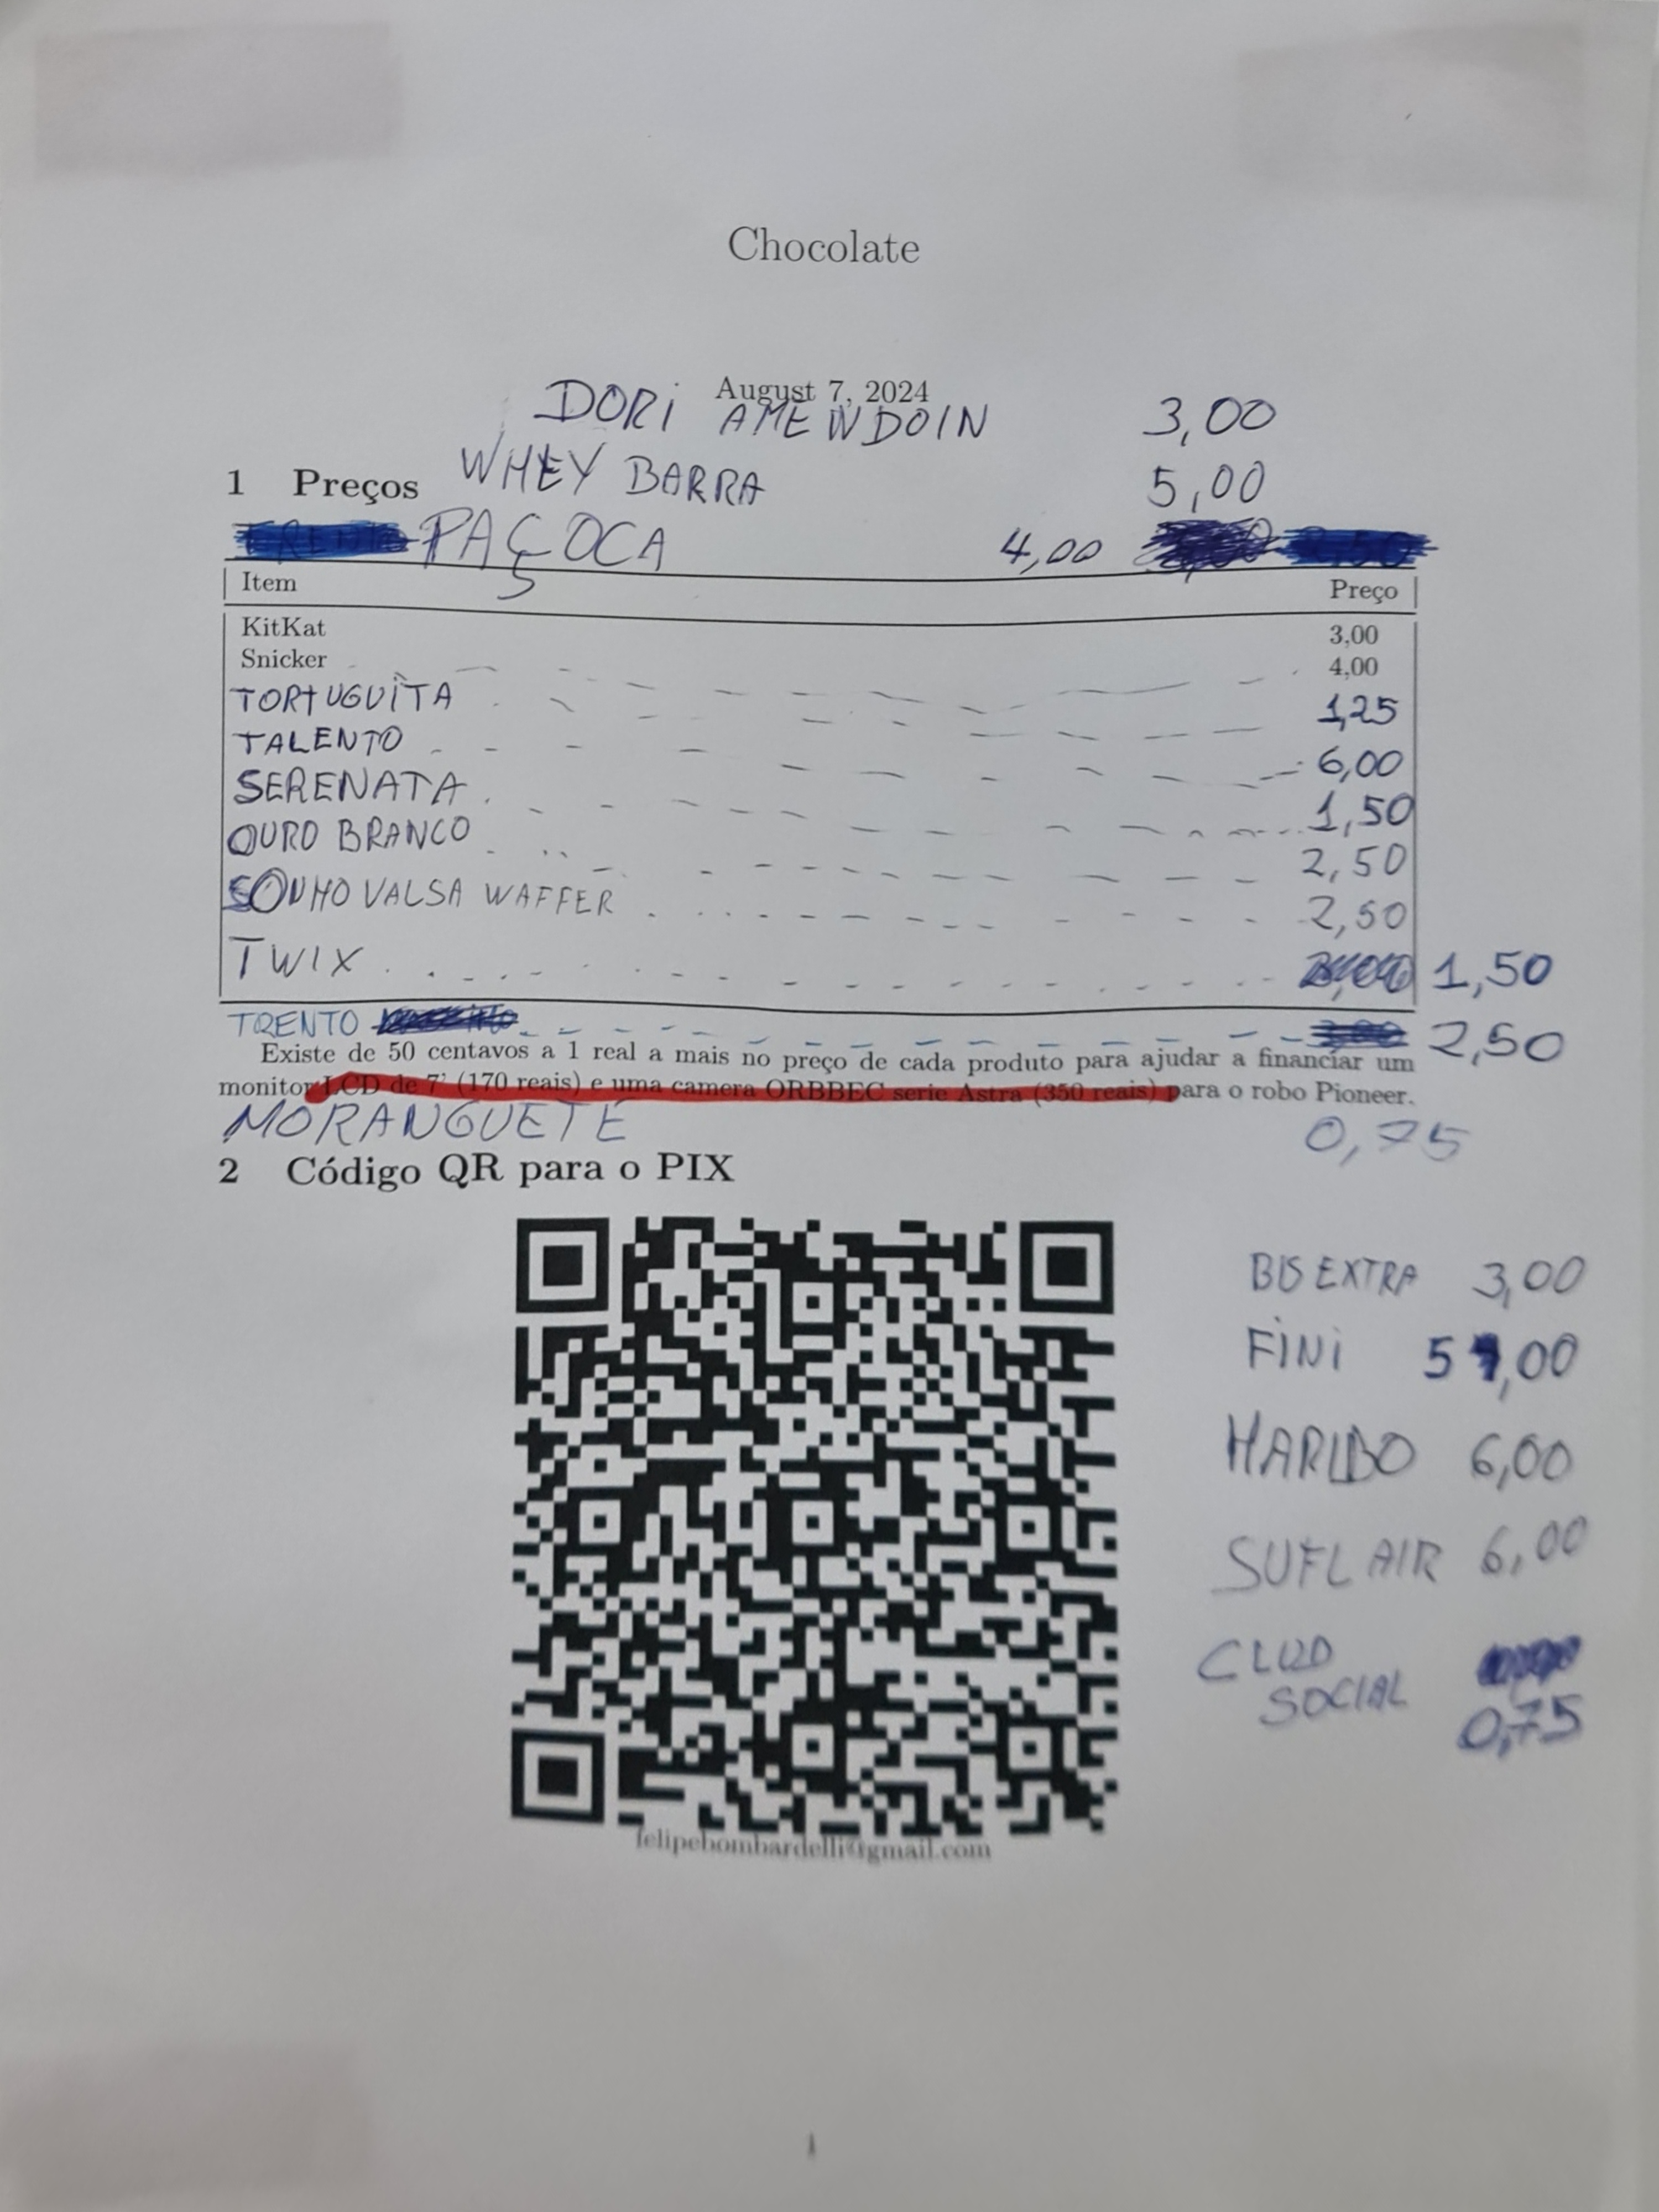 Chocolate
August 7, 2024
DORI AMENDOIN 3,00
1 Preços WHEY BARRA 5,00
PAÇOCA 4,00
Item Preço
KitKat 3,00
Snicker 4,00
TORTUGUITA 1,25
TALENTO 6,00
SERENATA 1,50
OURO BRANCO 2,50
SONHO VALSA WAFFER 2,50
TWIX 1,50
TRENTO 2,50
Existe de 50 centavos a 1 real a mais no preço de cada produto para ajudar a financiar um
monitor LCD de 7' (170 reais) e uma camera ORBBEC serie Astra (350 reais) para o robo Pioneer.
MORANGUETE 0,75
2 Código QR para o PIX
BIS EXTRA 3,00
FINI 5,00
HARIBO 6,00
SUFLAIR 6,00
CLUB
SOCIAL
0,75
felipebombardelli@gmail.com
1